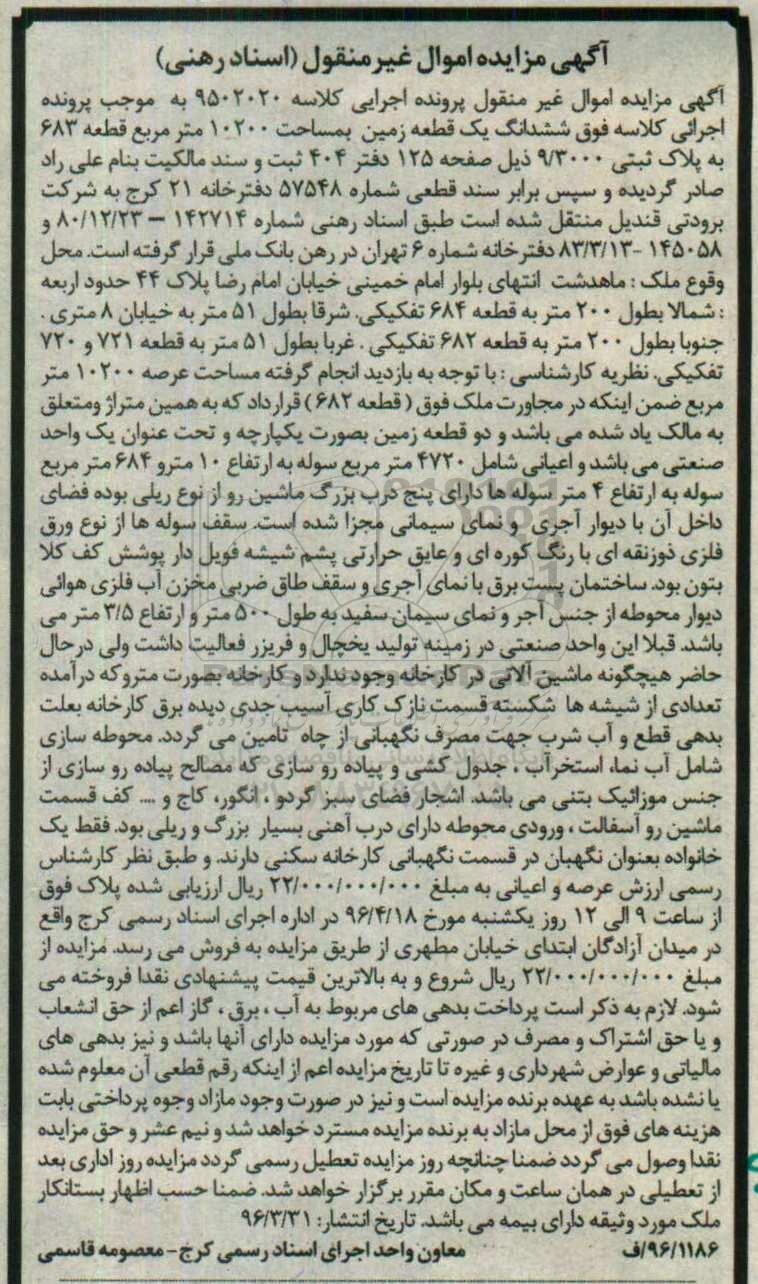 آگهی مزایده اموال غیرمنقول (اسناد رهنی)
آگهی مزایده اموال غیر منقول پرونده اجرایی کلاسه ۹۵۰۲۰۲۰ به موجب پرونده
اجرائی کلاسه فوق ششدانگ یک قطعه زمین بمساحت ۱۰۲۰۰ متر مربع قطعه ۶۸۳
به پلاک ثبتی ۹/۳۰۰۰ ذیل صفحه ۱۲۵ دفتر ۴۰۴ ثبت و سند مالکیت بنام علی راد
صادر گردیده و سپس برابر سند قطعی شماره ۵۷۵۴۸ دفترخانه ۲۱ کرج به شرکت
برودتی قندیل منتقل شده است طبق اسناد رهنی شماره ۱۴۲۷۱۴ – ۸۰/۱۲/۲۳ و
۱۴۵۰۵۸ -۸۳/۳/۱۳ دفترخانه شماره ۶ تهران در رهن بانک ملی قرار گرفته است. محل
وقوع ملک : ماهدشت انتهای بلوار امام خمینی خیابان امام رضا پلاک ۴۴ حدود اربعه
: شمالا بطول ۲۰۰ متر به قطعه ۶۸۴ تفکیکی. شرقا بطول ۵۱ متر به خیابان ۸ متری .
جنوبا بطول ۲۰۰ متر به قطعه ۶۸۲ تفکیکی . غربا بطول ۵۱ متر به قطعه ۷۲۱ و ۷۲۰
تفکیکی. نظریه کارشناسی : با توجه به بازدید انجام گرفته مساحت عرصه ۱۰۲۰۰ متر
مربع ضمن اینکه در مجاورت ملک فوق ( قطعه ۶۸۲ ) قرارداد که به همین متراژ ومتعلق
به مالک یاد شده می باشد و دو قطعه زمین بصورت یکپارچه و تحت عنوان یک واحد
صنعتی می باشد و اعیانی شامل ۴۷۲۰ متر مربع سوله به ارتفاع ۱۰ مترو ۶۸۴ متر مربع
سوله به ارتفاع ۴ متر سوله ها دارای پنج درب بزرگ ماشین رو از نوع ریلی بوده فضای
داخل آن با دیوار آجری و نمای سیمانی مجزا شده است. سقف سوله ها از نوع ورق
فلزی ذوزنقه ای با رنگ کوره ای و عایق حرارتی پشم شیشه فویل دار پوشش کف کلا
بتون بود. ساختمان پست برق با نمای آجری و سقف طاق ضربی مخزن آب فلزی هوائی
دیوار محوطه از جنس آجر و نمای سیمان سفید به طول ۵۰۰ متر و ارتفاع ۳/۵ متر می
باشد. قبلا این واحد صنعتی در زمینه تولید یخچال و فریزر فعالیت داشت ولی درحال
حاضر هیچگونه ماشین آلاتی در کارخانه وجود ندارد و کارخانه بصورت متروکه درآمده
تعدادی از شیشه ها شکسته قسمت نازک کاری آسیب جدی دیده برق کارخانه بعلت
بدهی قطع و آب شرب جهت مصرف نگهبانی از چاه تامین می گردد. محوطه سازی
شامل آب نما، استخرآب ، جدول کشی و پیاده رو سازی که مصالح پیاده رو سازی از
جنس موزائیک بتنی می باشد. اشجار فضای سبز گردو ، انگور، کاج و .... کف قسمت
ماشین رو آسفالت ، ورودی محوطه دارای درب آهنی بسیار بزرگ و ریلی بود. فقط یک
خانواده بعنوان نگهبان در قسمت نگهبانی کارخانه سکنی دارند. و طبق نظر کارشناس
رسمی ارزش عرصه و اعیانی به مبلغ ۲۲/۰۰۰/۰۰۰/۰۰۰ ریال ارزیابی شده پلاک فوق
از ساعت ۹ الی ۱۲ روز یکشنبه مورخ ۹۶/۴/۱۸ در اداره اجرای اسناد رسمی کرج واقع
در میدان آزادگان ابتدای خیابان مطهری از طریق مزایده به فروش می رسد. مزایده از
مبلغ ۲۲/۰۰۰/۰۰۰/۰۰۰ ریال شروع و به بالاترین قیمت پیشنهادی نقدا فروخته می
شود. لازم به ذکر است پرداخت بدهی های مربوط به آب ، برق ، گاز اعم از حق انشعاب
و یا حق اشتراک و مصرف در صورتی که مورد مزایده دارای آنها باشد و نیز بدهی های
مالیاتی و عوارض شهرداری و غیره تا تاریخ مزایده اعم از اینکه رقم قطعی آن معلوم شده
یا نشده باشد به عهده برنده مزایده است و نیز در صورت وجود مازاد وجوه پرداختی بابت
هزینه های فوق از محل مازاد به برنده مزایده مسترد خواهد شد و نیم عشر و حق مزایده
نقدا وصول می گردد ضمنا چنانچه روز مزایده تعطیل رسمی گردد مزایده روز اداری بعد
از تعطیلی در همان ساعت و مکان مقرر برگزار خواهد شد. ضمنا حسب اظهار بستانکار
ملک مورد وثیقه دارای بیمه می باشد. تاریخ انتشار: ۹۶/۳/۳۱
۹۶/۱۱۸۶/ف معاون واحد اجرای اسناد رسمی کرج - معصومه قاسمی